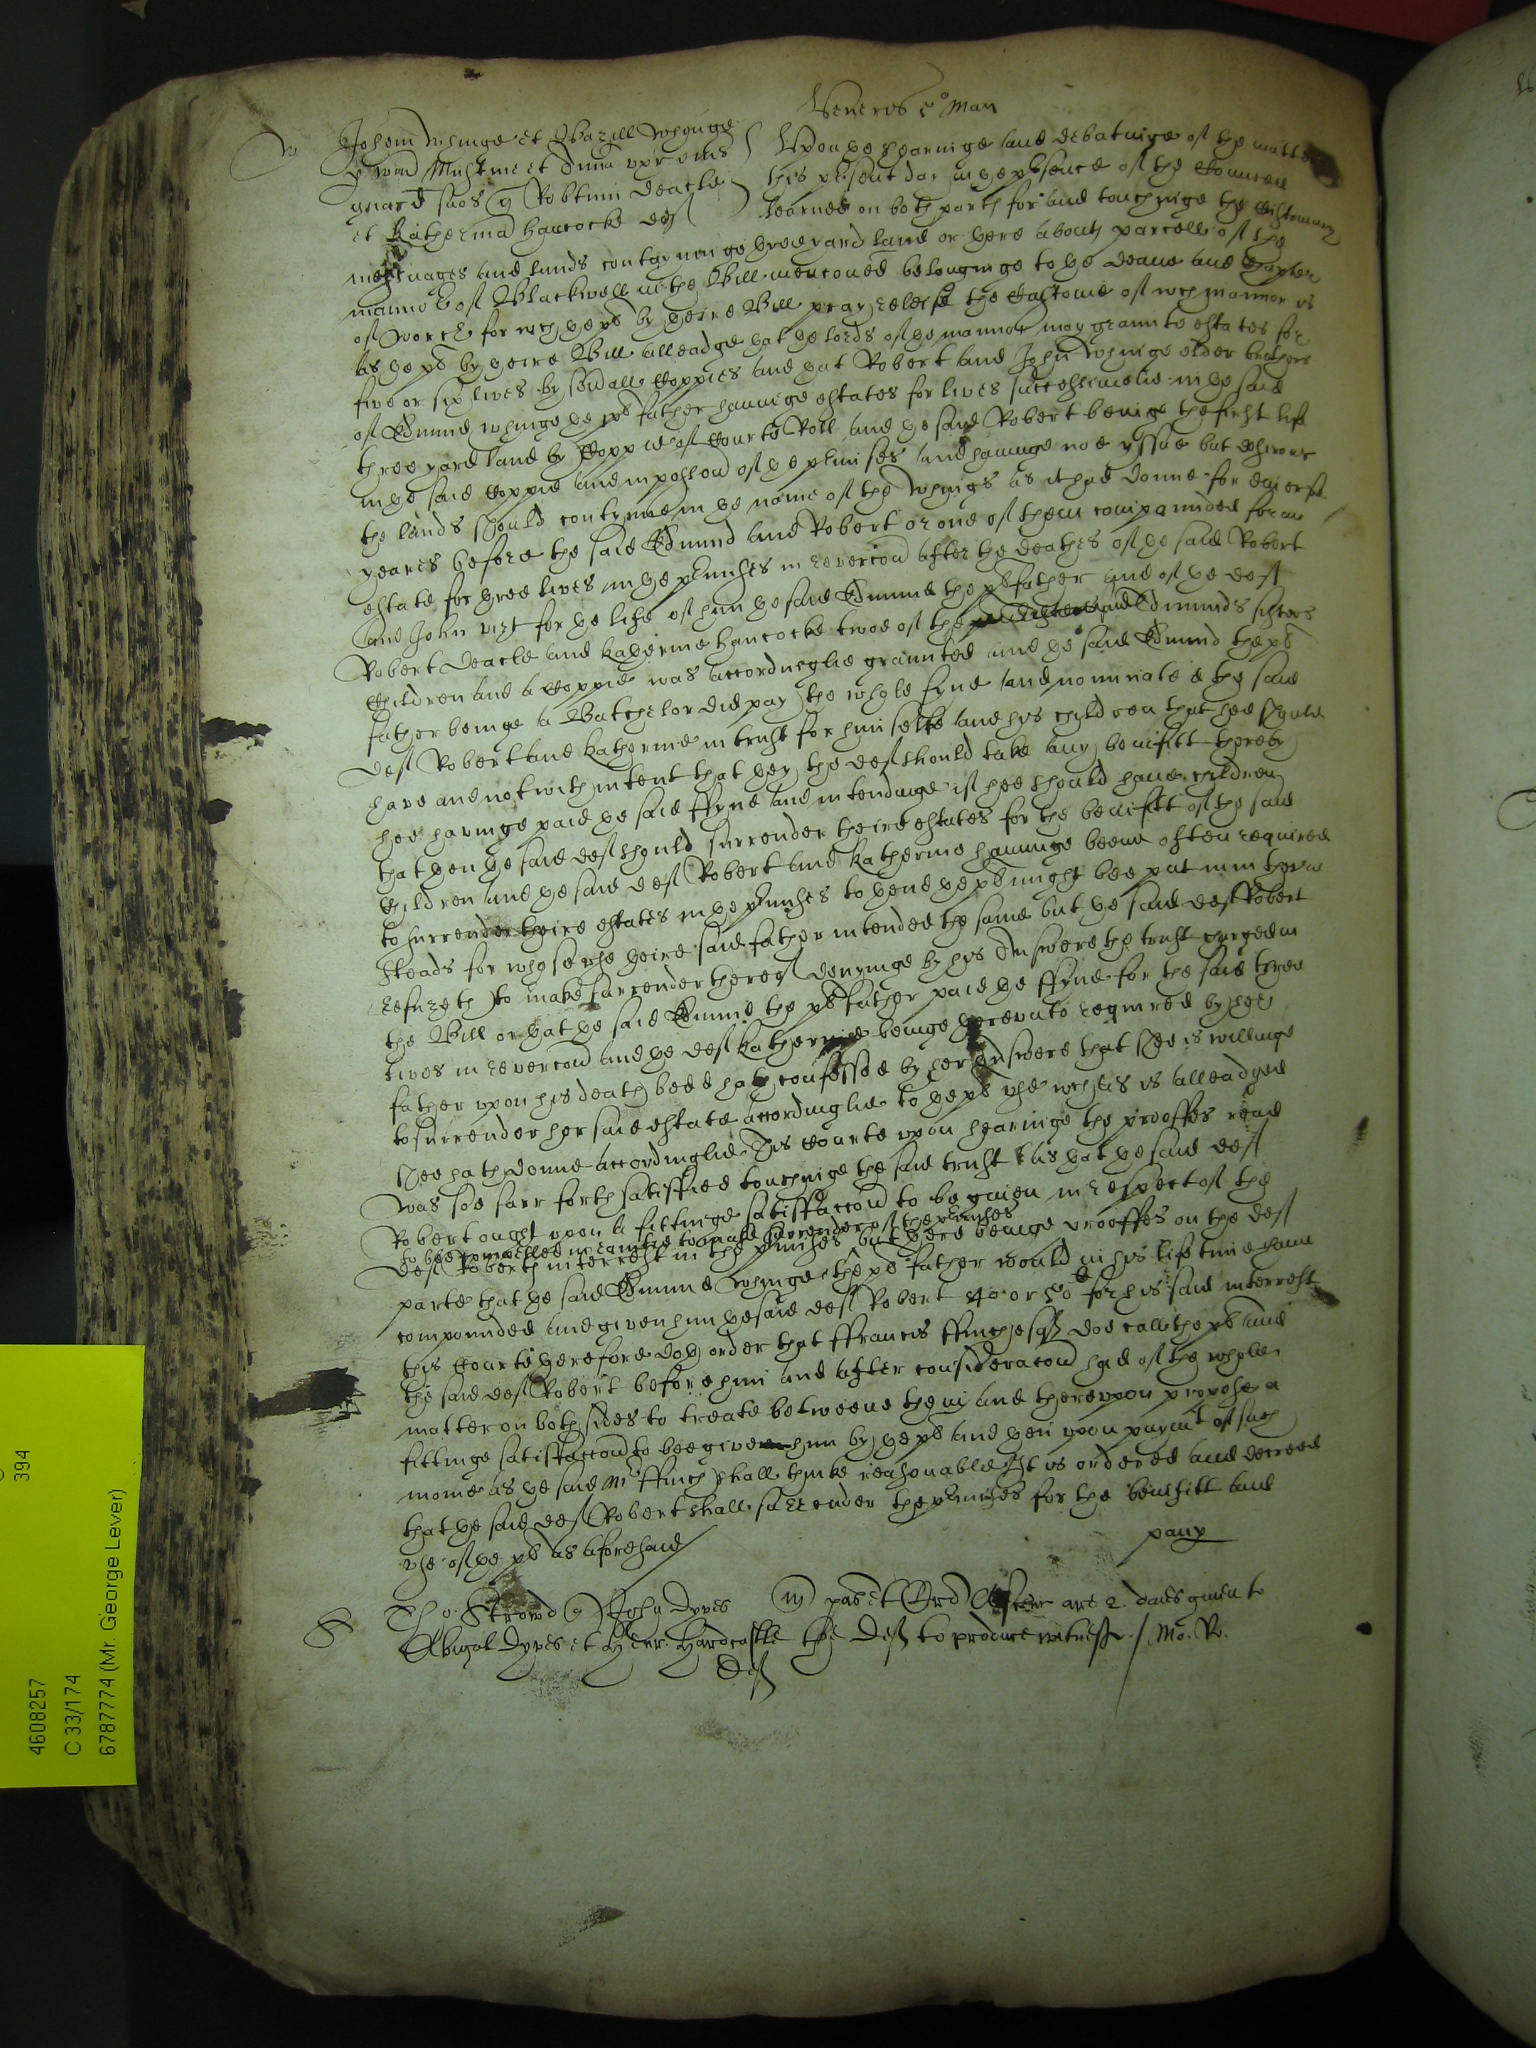 Veneris 5º Maii
Johem Whinge et Basill Whinge
p Mustine et Anna uxr eius
guard suos q Robtum Deacle
et Katherina Hancocke def
Upon ye hearinge and debatinge of the matter
this present day in ye psence of the Councell
learned on both partes for and touchinge the Customary
messuages and lands conteyninge three yard land or there abouts parcell of the
mannor of Blackwell in the Bill menconed belonginge to ye Deane and Chapter
of Worcr for wch ye pls by theire Bill pray releife the Custome of wch mannor is
as ye pls by theire Bill alleadge yat ye lords of ye mannor may graunte estates for
five or six lives by sevall Coppies and yat Robert and John Whinge elder brothers
of Edmund Whinge ye pls father havinge estates for lives successivelie in ye said
three yard land by Coppie of Courte Roll and ye said Robert beinge the first life
in ye said Coppie and in possion of ye pmises and havinge noe yssue but desirous
the lands should contynue in ye name of the Whings as it had donne for divers
yeares before the said Edmund and Robert or one of them compounded for an
estate for three lives in ye pmisses in revercon after the deathes of ye said Robert
and John vizt for ye life of him ye said Edmund the pls father and of ye def
Robert Deacle and Katherine Hancocke twoe of the said Edmunds sisters
Children and a Coppie was accordinglie graunted and ye said Edmund the pls
father beinge a Batchelor did pay the whole fyne and nominated the said
def Robert and Katherine in trust for himselfe and his children that hee should
have and not with intent that they the def should take any benifitt thereby
hee havinge paid ye said ffyne and intendinge if hee should have children
that then ye said def should surrender theire estates for the benifitt of the said
Children and ye said def Robert and Katherine havinge beene often required
to surrender theire estates in ye pmisses to thend ye pls might bee put in in their
steads for whose use theire said father intended the same but ye said def Robert
refuzeth to make surrender thereof denyinge by his Answere the trust charged in
the Bill or yat ye said Edmund the pls father paid ye ffyne for the said three
lives in revercon and ye def Katherine beinge thereunto required by her
father upon his death bedd hath confessed by her Answere that shee is willinge
to surrender her said estate accordinglie to ye pls use wch as is alleadged
shee hath donne accordinglie This Courte upon hearinge the prooffes read
was soe farr forth satisfied touchinge the said trust as yat ye said def
Robert ought upon a fittinge satisfaccon to be given in respect of the
to bee compelled in equitie to make surrender of the pmisses
def Roberts interrest in the pmisses but there beinge prooffes on the def
parte that ye said Edmund Whinge the pls father would in his life time have
compounded and given him ye said def Robert 40 or 50l for his said interrest
this Courte therefore doth order that ffrancis ffinch esqr doe call the pls and
the said def Robert before him and after consideracon had of the whole
matter on both sides to treate betweene them and thereupon propose a
fittinge satisfaccon to bee given him by ye pls and then upon paymt of such
monie as ye said Mr ffinch shall thinke reasonable It is ordered and decreed
that ye said def Robert shall surrender the pmisses for the benifitt and
use of ye pls as aforesaid
paup
Tho: Strowd q John Dyves
Abigal Dyves et Henr. Hardcastle
def
are 2. daies given to
the def to produce witnesses / Mo. R.
394
4608257
C 33/174
6787774 (Mr. George Lever)